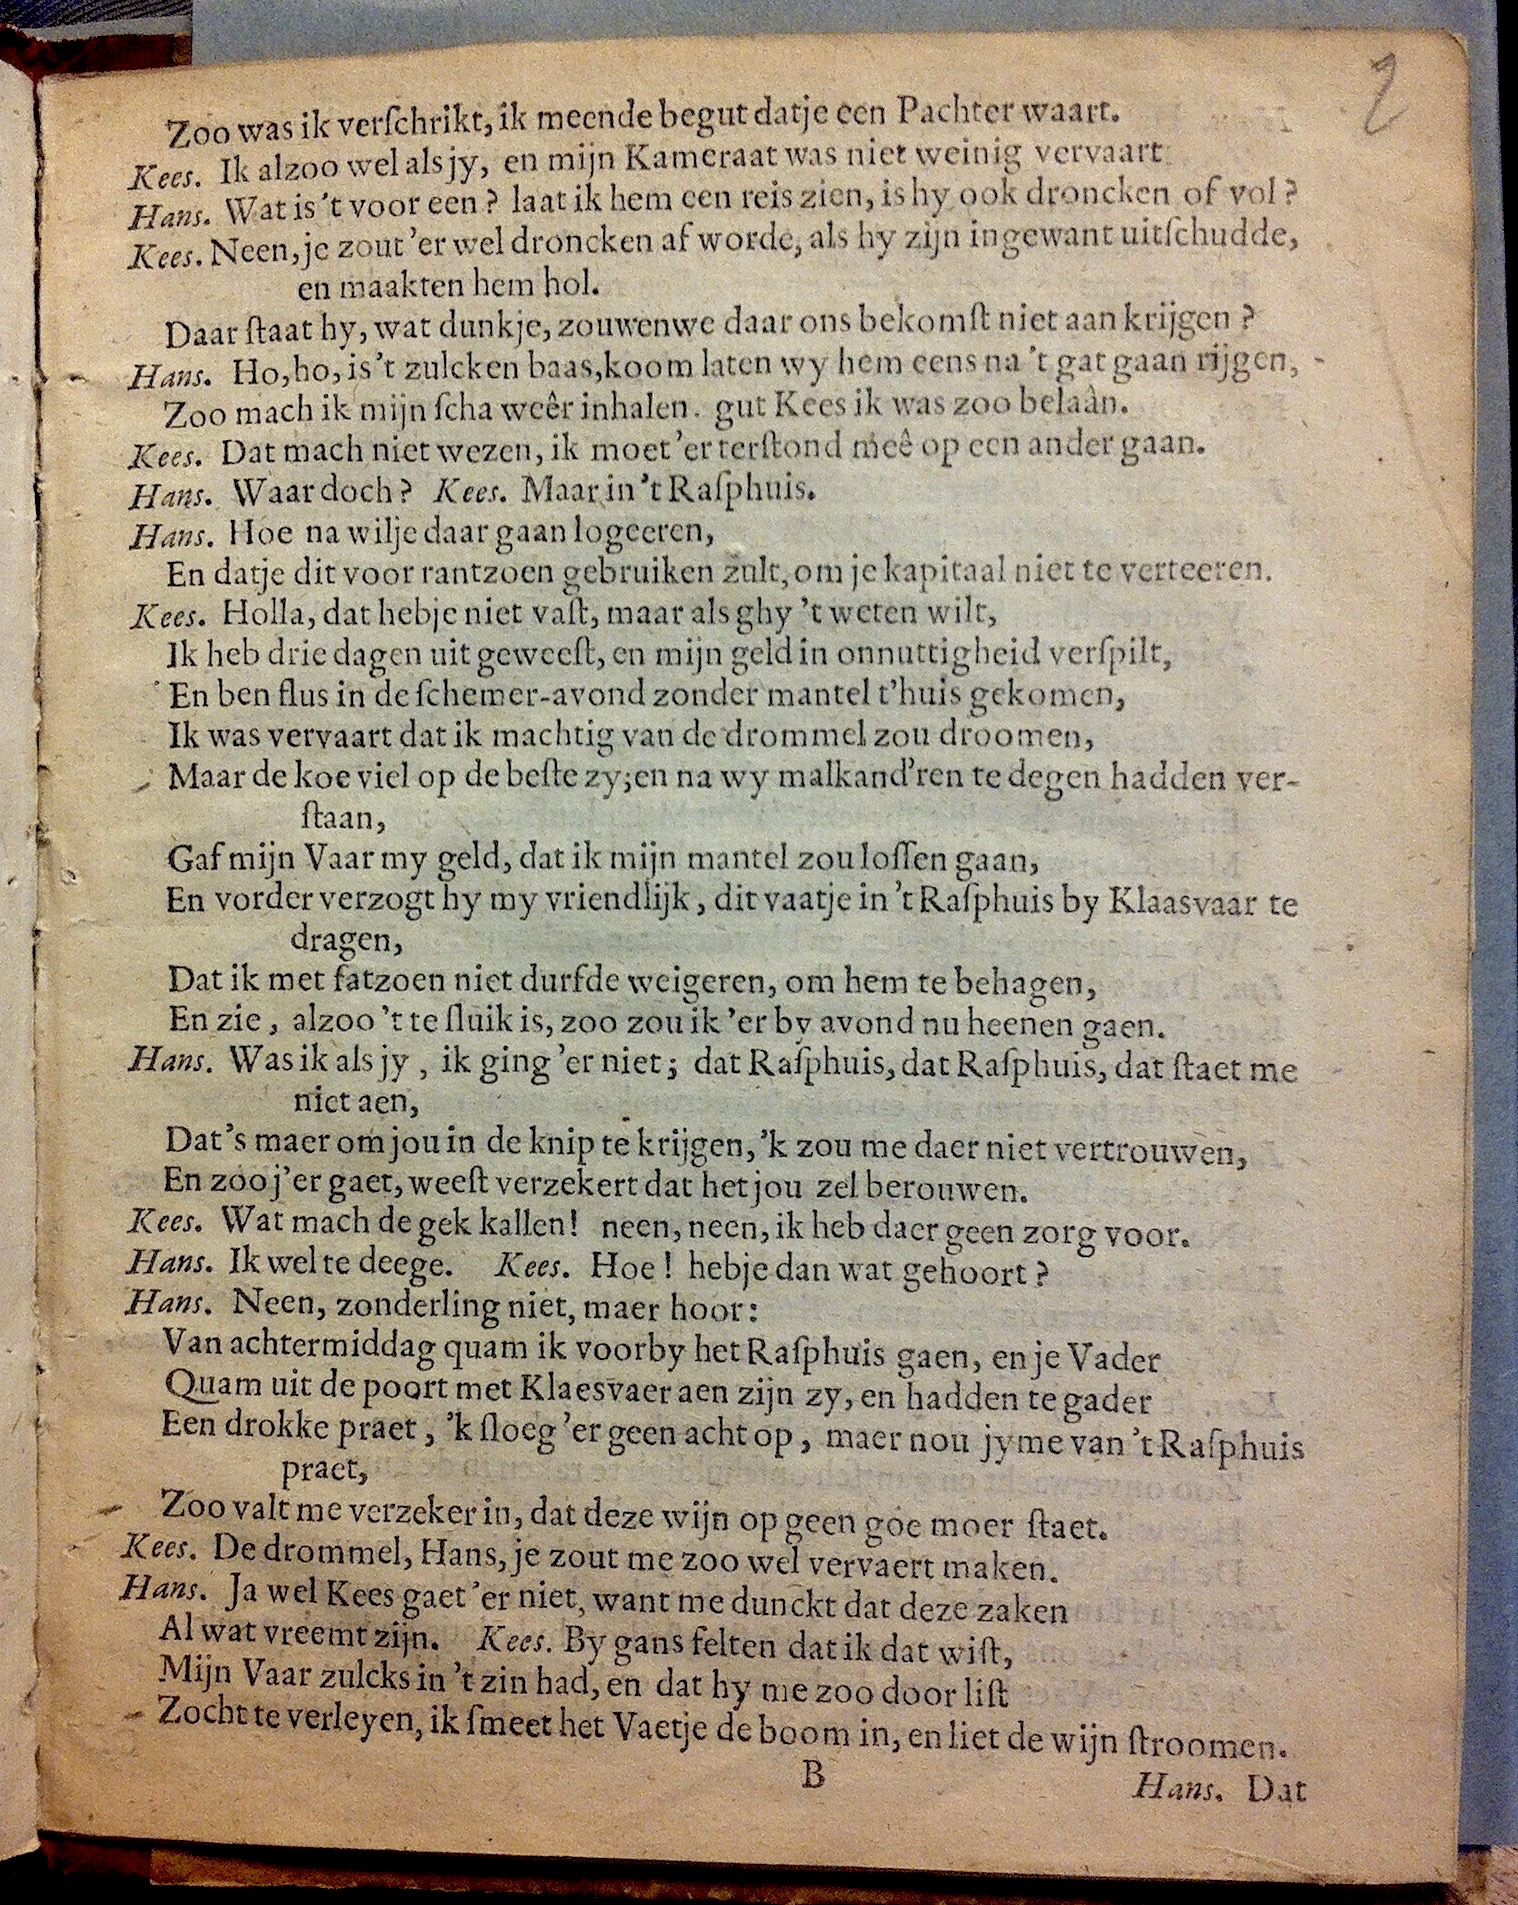 2
Zoo was ik verſchrikt, ik meende begut datje een Pachter waart.
Kees. Ik alzoo wel als jy, en mijn Kameraat was niet weinig vervaart
Hans. Wat is 't voor een? laat ik hem een reis zien, is hy ook droncken of vol?
Kees. Neen, je zout 'er wel droncken af worde, als hy zijn ingewant uitſchudde,
en maakten hem hol.
Daar ſtaat hy, wat dunkje, zouwenwe daar ons bekomſt niet aan krijgen?
Hans. Ho, ho, is 't zulcken baas, koom laten wy hem eens na 't gat gaan rijgen,
Zoo mach ik mijn ſcha weêr inhalen. gut Kees ik was zoo belaân.
Kees. Dat mach niet wezen, ik moet 'er terſtond meê op een ander gaan.
Hans. Waar doch? Kees. Maar in 't Raſphuis.
Hans. Hoe na wilje daar gaan logeeren,
En datje dit voor rantzoen gebruiken zult, om je kapitaal niet te verteeren.
Kees. Holla, dat hebje niet vaſt, maar als ghy 't weten wilt,
Ik heb drie dagen uit geweeſt, en mijn geld in onnuttigheid verſpilt,
En ben flus in de ſchemer-avond zonder mantel t'huis gekomen,
Ik was vervaart dat ik machtig van de drommel zou droomen,
Maar de koe viel op de beſte zy; en na wy malkand'ren te degen hadden ver-
ſtaan,
Gaf mijn Vaar my geld, dat ik mijn mantel zou loſſen gaan,
En vorder verzogt hy my vriendlijk, dit vaatje in 't Raſphuis by Klaasvaar te
dragen,
Dat ik met fatzoen niet durfde weigeren, om hem te behagen,
En zie, alzoo 't te ſluik is, zoo zou ik 'er by avond nu heenen gaen.
Hans. Was ik als jy, ik ging 'er niet; dat Raſphuis, dat Raſphuis, dat ſtaet me
niet aen,
Dat's maer om jou in de knip te krijgen, 'k zou me daer niet vertrouwen,
En zoo j'er gaet, weeſt verzekert dat het jou zel berouwen.
Kees. Wat mach de gek kallen! neen, neen, ik heb daer geen zorg voor.
Hans. Ik wel te deege. Kees. Hoe! hebje dan wat gehoort?
Hans. Neen, zonderling niet, maer hoor:
Van achtermiddag quam ik voorby het Raſphuis gaen, en je Vader
Quam uit de poort met Klaesvaer aen zijn zy, en hadden te gader
Een drokke praet, 'k ſloeg 'er geen acht op, maer nou jy me van 't Raſphuis
praet,
Zoo valt me verzeker in, dat deze wijn op geen goe moer ſtaet.
Kees. De drommel, Hans, je zout me zoo wel vervaert maken.
Hans. Ja wel Kees gaet 'er niet, want me dunckt dat deze zaken
Al wat vreemt zijn. Kees. By gans felten dat ik dat wiſt,
Mijn Vaar zulcks in 't zin had, en dat hy me zoo door liſt
Zocht te verleyen, ik ſmeet het Vaetje de boom in, en liet de wijn ſtroomen.
B
Hans. Dat